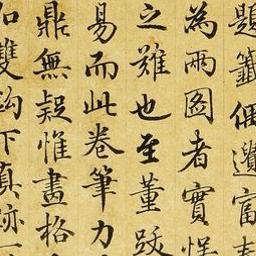 題籤偶遺富春
為兩圖者實悮
之難也至董跋
易而此卷筆力
鼎無疑惟畫格
如雙鈎下真跡一